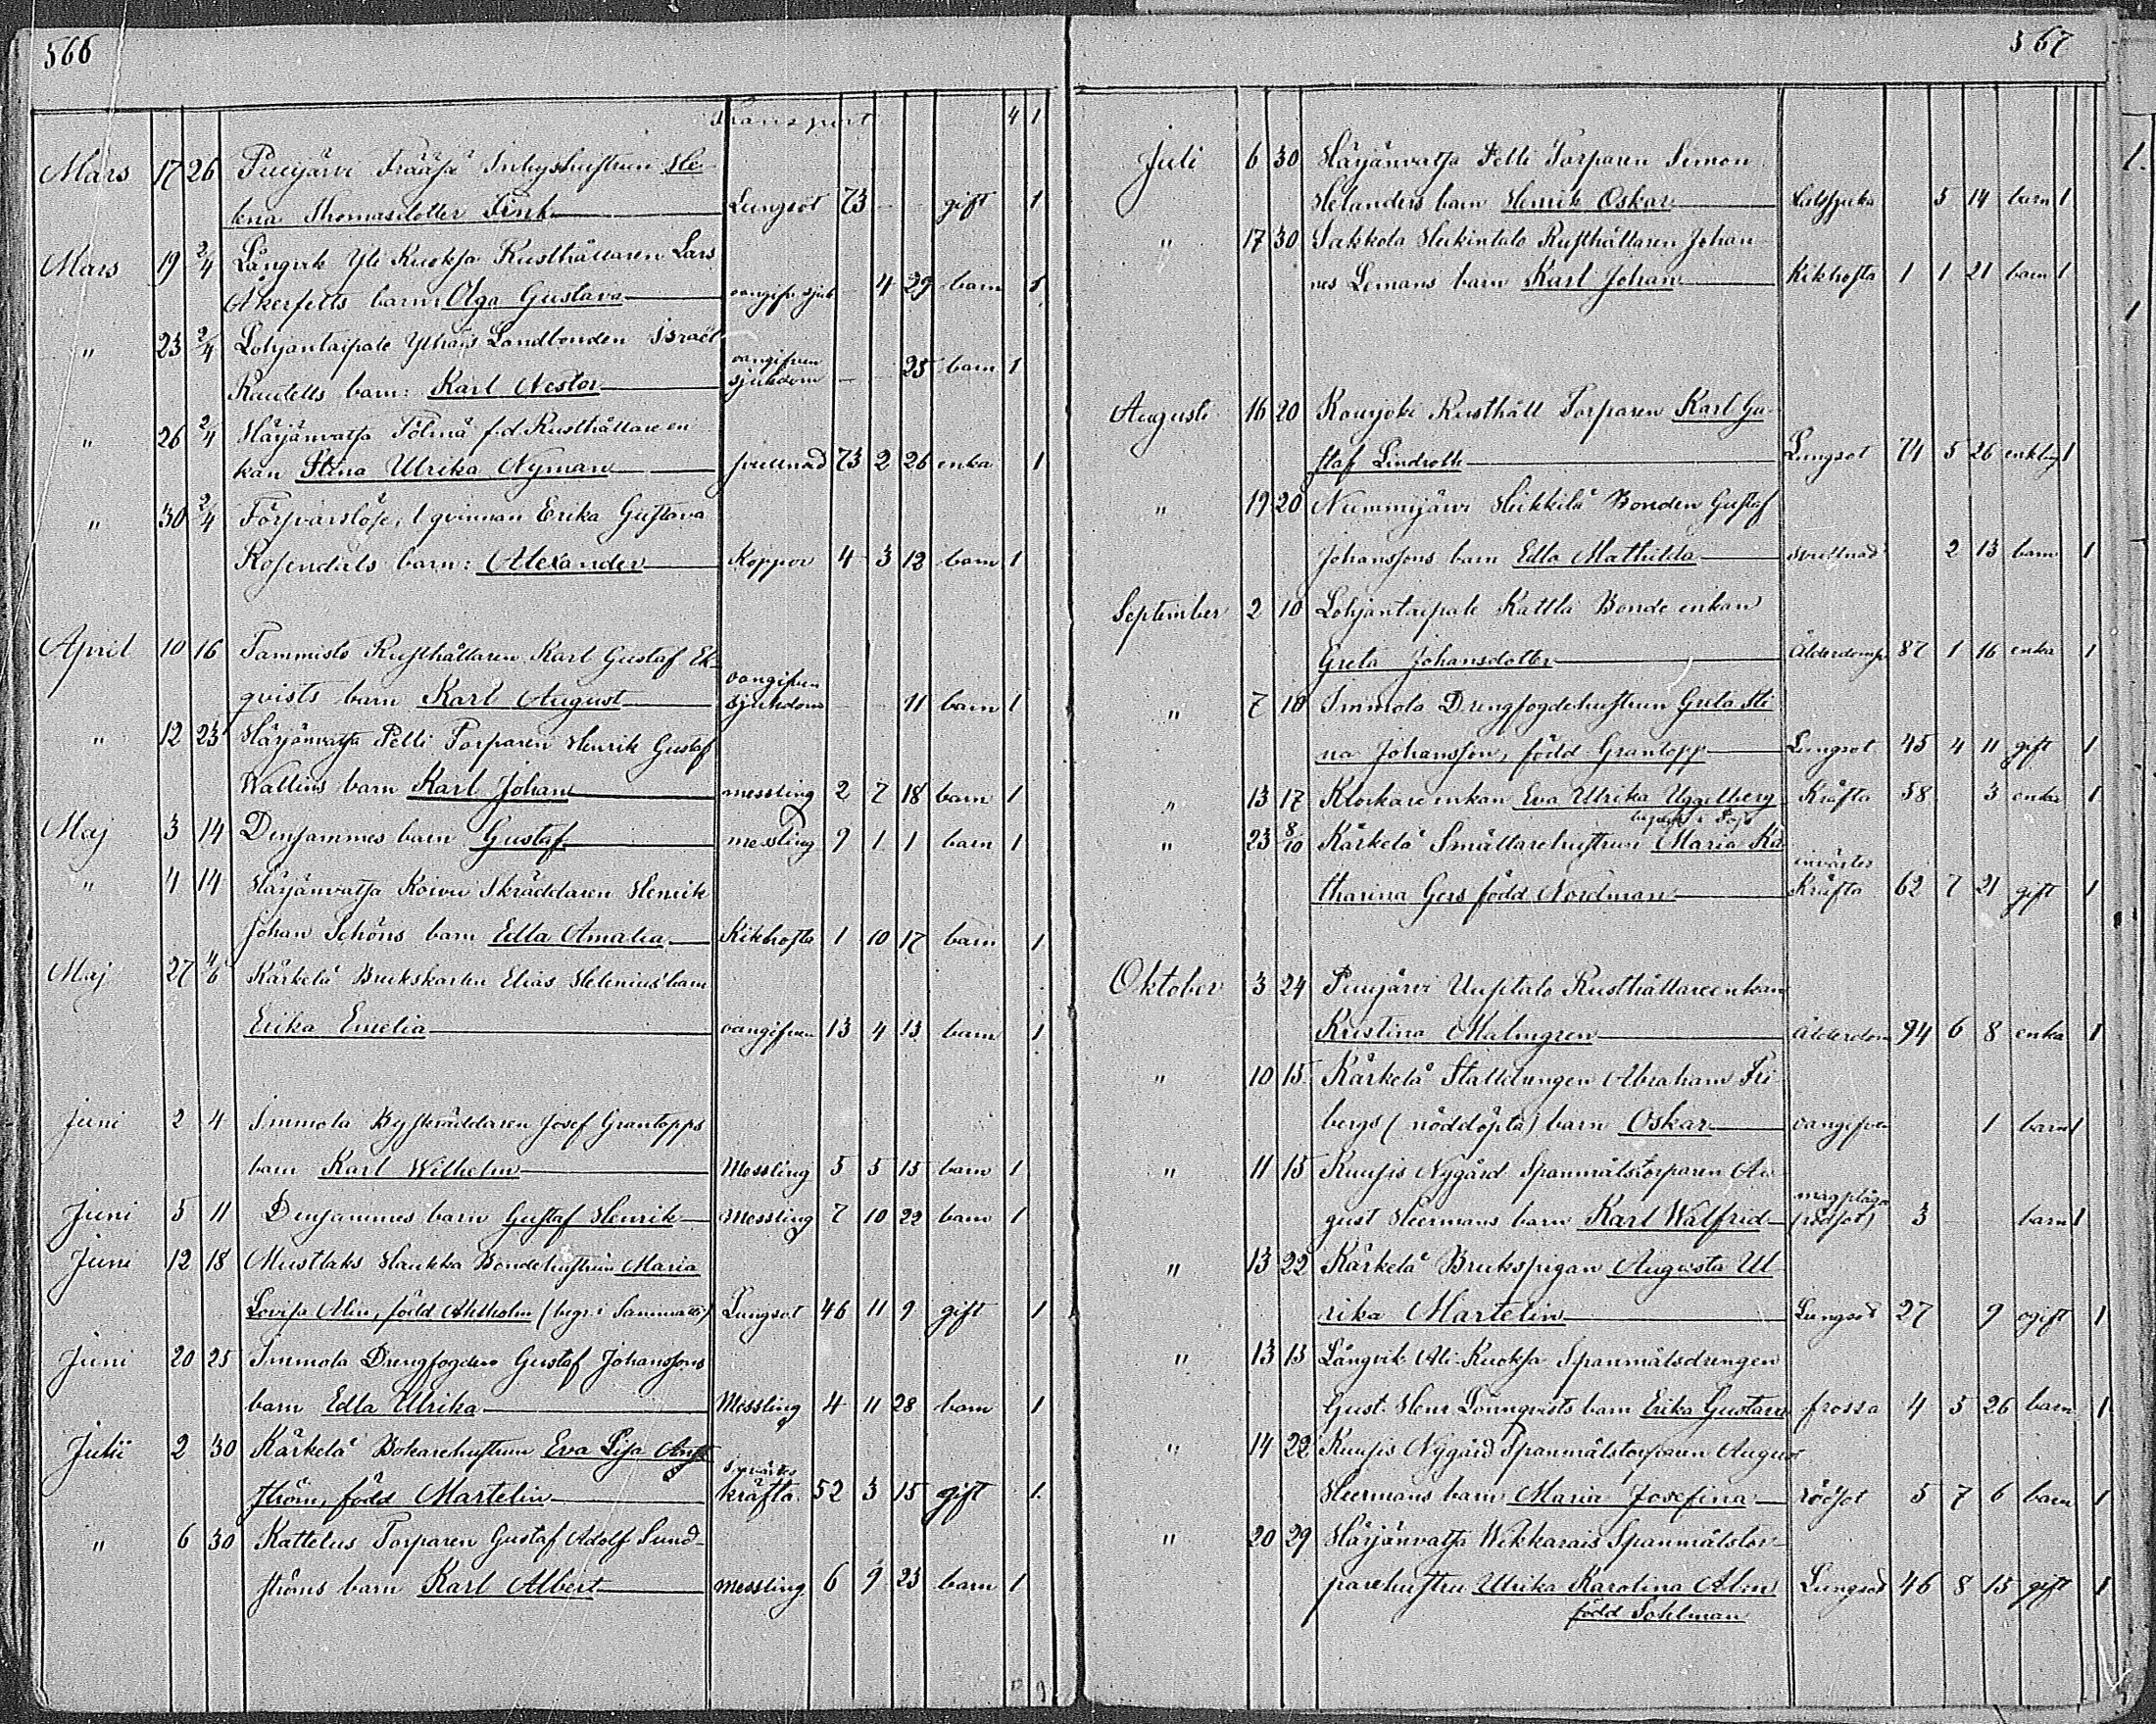 566
Transport 4 1
Mars 17 26 Puujärvi Träätjä Inhyshustrun He-
lena Thomasdotter Fink Lungsot 73 gift 1
Mars 19 2/4 Långvik Yli Kuoksa Rusthållaren Lars
Åkerfelts barn Olga Gustava oangifv. sjuk 4 29 barn 1
" 23 2/4 Lohjantaipale Landbonden Israël
barn: Karl Nestor oangifven sjukdom 25 barn 1
" 26 2/4 Härjänvatsa Tölmä f.d. Rusthållareen
kan Stina Ulrika Nyman svullnad 73 2 26 enka 1
" 30 2/4 Försvarslöse, l. qvinnan Erika Gustava
Rosendals barn: Alexander Koppor 4 3 12 barn 1
April 10 16 Tammisto Rusthållaren Karl Gustaf Ek-
qvists barn Karl August oangifven sjukdom 11 barn 1
" 12 23 Härjänvatsa Pelli Torparen Henrik Gustaf
Wallins barn Karl Johan messling 2 7 18 barn 1
Maj 3 14 Densammes barn Gustaf messling 9 1 1 barn 1
" 4 14 Härjänvatsa Koivu Skräddaren Henrik
Johan Schöns barn Edla Amalia Kikhosta 1 10 17 barn 1
Maj 27 4/6 Kärkelä Brukskarlen Elias Helenius' barn
Erika Emelia oangifven 13 4 13 barn 1
Juni 2 4 Immola Byskräddaren Josef Grantopps
barn Karl Wilhelm Messling 5 5 15 barn 1
Juni 5 11 Densammes barn Gustaf Henrik Messling 7 10 22 barn 1
Juni 12 18 Mustlaks Haukka Bondehustrun Maria
Lovisa Alin, född Ahlholm (begr. i Sammatti) Lungsot 46 11 9 gift 1
Juni 20 25 Immola Drengfogden Gustaf Johanssons
barn Edla Ulrika Messling 4 11 28 barn 1
Julii 2 30 Kärkelä Bokarehustrun Eva Lisa Ang
ström, född Martelin invärtes kräfta 52 3 15 gift 1
" 6 30 Kattelus Torparen Gustaf Adolf Sund-
ströms barn Karl Albert messling 6 9 23 barn 1
567
Juli 6 30 Härjänvatsa Pelli Torparen Simon
Helanders barn Henrik Oskar 5 14 barn 1
" 17 30 Sakkola Heikintalo Rusthållaren Johan-
nes Lemans barn Karl Johan Kikhosta 1 1 21 barn 1
Augusti 16 20 Kouvjoki Rusthåll Torparen Karl Gu-
staf Lindroth Lungsot 74 5 26 enkling 1
" 19 20 Nummijärvi Heikkilä Bonden Gustaf
Johanssons barn Edla Mathilda svullnad 2 13 barn 1
September 2 10 Lohjantaipale Kattla Bonde enkan
Greta Johansdotter Ålderdoms 87 1 16 enka 1
" 7 10 Immola Drengfogdehustrun Greta Sti
na Johansson, född Grantopp Lungsot 45 4 11 gift 1
" 13 17 Klockare enkan Eva Ulrika Uggelberg Kräfta 58 3 enka 1
begrafv. i Pojo
" 23 8/10 Kärkelä Smältarehustrun Maria Ka
tharina Gers född Nordman invärtes Kräfta 62 7 21 gift 1
Oktober 3 24 Puujärvi Uusitalo Rusthållareenkan
Kristina Malmgren Ålderdom 94 6 8 enka 1
" 10 15 Kärkelä Stalldrengen Abraham Fri
bergs (nöddöpta) barn Oskar oangifven 1 barn 1
" 11 15 Kuusis Nygård Spanmålstorparen Au
gust Heermans barn Karl Walfrid magplåga (rödsot) 3 barn 1
" 13 22 Kärkelä Brukspigan Augusta Ul
rika Martelin Lungsot 27 9 ogift 1
" 13 13 Långvik Ali-Kuoksa Spanmålsdrengen
Gust. Henr. Lönnqvists barn Erika Gustava frossa 4 5 26 barn 1
" 14 22 Kuusis Nygård Spanmålstorparen August
Heermans barn Maria Josefina rödsot 5 7 6 barn 1
" 20 29 Härjänvatsa Wikkarais Spanmålstor-
parehustru Ulrika Karolina Alin Lungsot 46 8 15 gift 1
född Sohlman